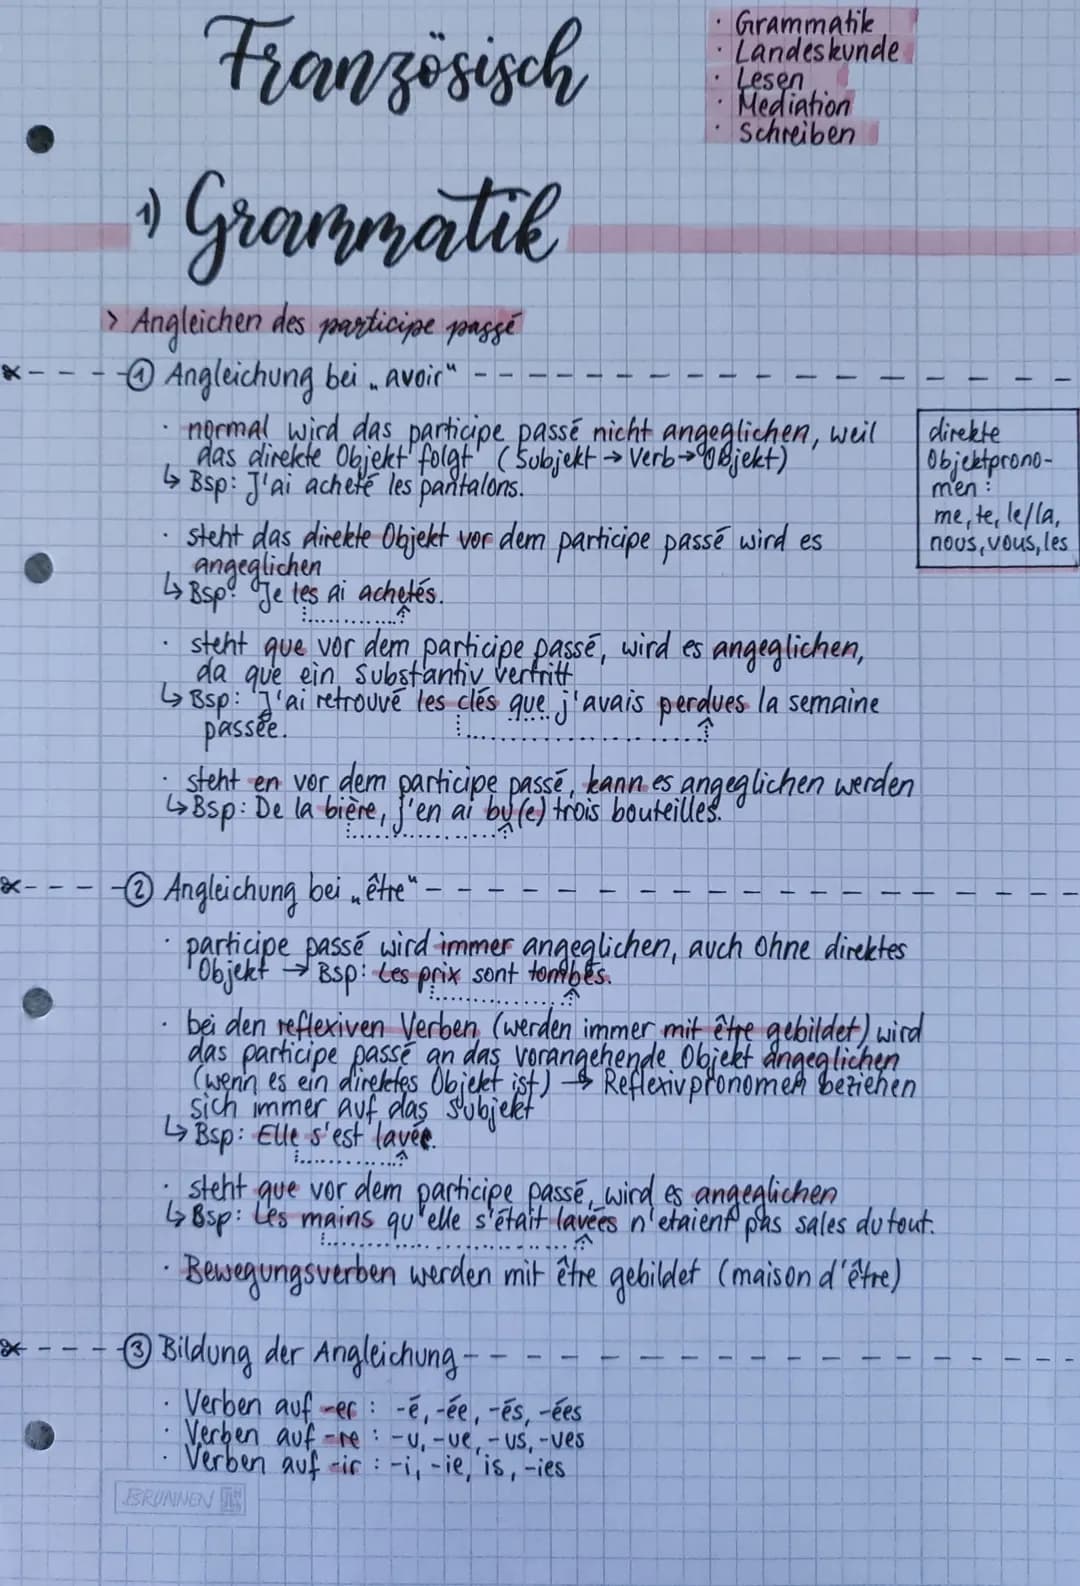 Französisch
· Grammatik
· Landeskunde
· Lesen
· Mediation
· Schreiben
1) Grammatik
> Angleichen des participe passé
① Angleichung bei „avoir"
· normal wird das participe passé nicht angeglichen, weil
das direkte Objekt folgt (Subjekt → Verb → Objekt)
↳ Bsp: J'ai acheté les pantalons.
direkte
Objektprono-
men:
me, te, le/la,
nous, vous, les
· steht das direkte Objekt vor dem participe passé wird es
angeglichen
↳ Bsp: Je les ai achetés.
· steht que vor dem participe passé, wird es angeglichen,
da que ein Substantiv vertritt
↳ Bsp: J'ai retrouvé les clés que j'avais perdues la semaine
passée.
· steht en vor dem participe passé, kann es angeglichen werden
↳ Bsp: De la bière, j'en ai bu(e) trois bouteilles.
② Angleichung bei „être"
· participe passé wird immer angeglichen, auch ohne direktes
Objekt → Bsp: Les prix sont tombés.
· bei den reflexiven Verben (werden immer mit être gebildet) wird
das participe passé an das vorangehende Objekt angeglichen
(wenn es ein direktes Objekt ist) → Reflexivpronomen beziehen
sich immer auf das Subjekt
↳ Bsp: Elle s'est lavée.
· steht que vor dem participe passé, wird es angeglichen
↳ Bsp: Les mains qu'elle s'était lavées n'etaient pas sales du tout.
· Bewegungsverben werden mit être gebildet (maison d'être)
③ Bildung der Angleichung
· Verben auf -er : -é, -ée, -és, -ées
· Verben auf -re : -u, -ue, -us, -ues
· Verben auf -ir : -i, -ie, is, -ies
BRUNNEN